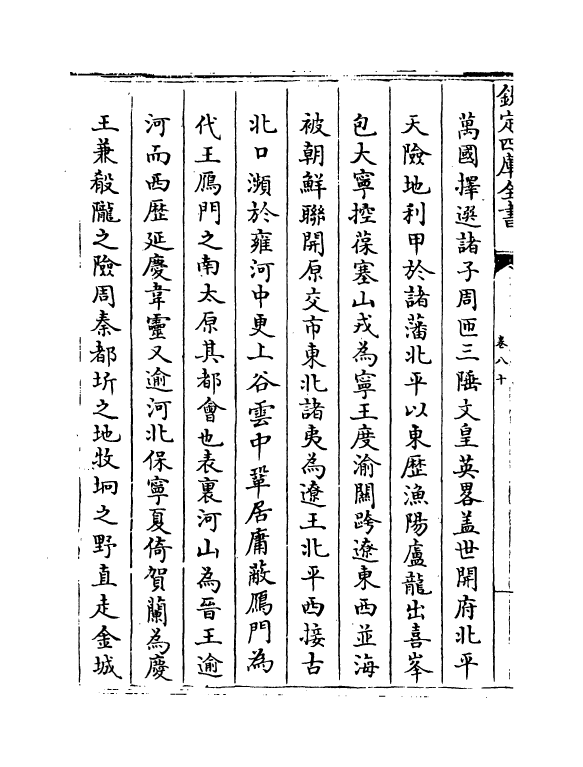 欽定四庫全書
卷八十
萬國擇選諸子周匝三陲文皇英畧盖世開府北平
天險地利甲於諸藩北平以東歷漁陽盧龍出喜峯
包大寧控葆塞山戎為寧王度渝關跨遼東西並海
被朝鮮聯開原交市東北諸夷為遼王北平西接古
北口瀕於雍河中更上谷雲中鞏居庸蔽鴈門為
代王鴈門之南太原其都會也表裏河山為晉王逾
河而西歷延慶韋靈又逾河北保寧夏倚賀蘭為慶
王兼殽隴之險周秦都圻之地牧坰之野直走金城